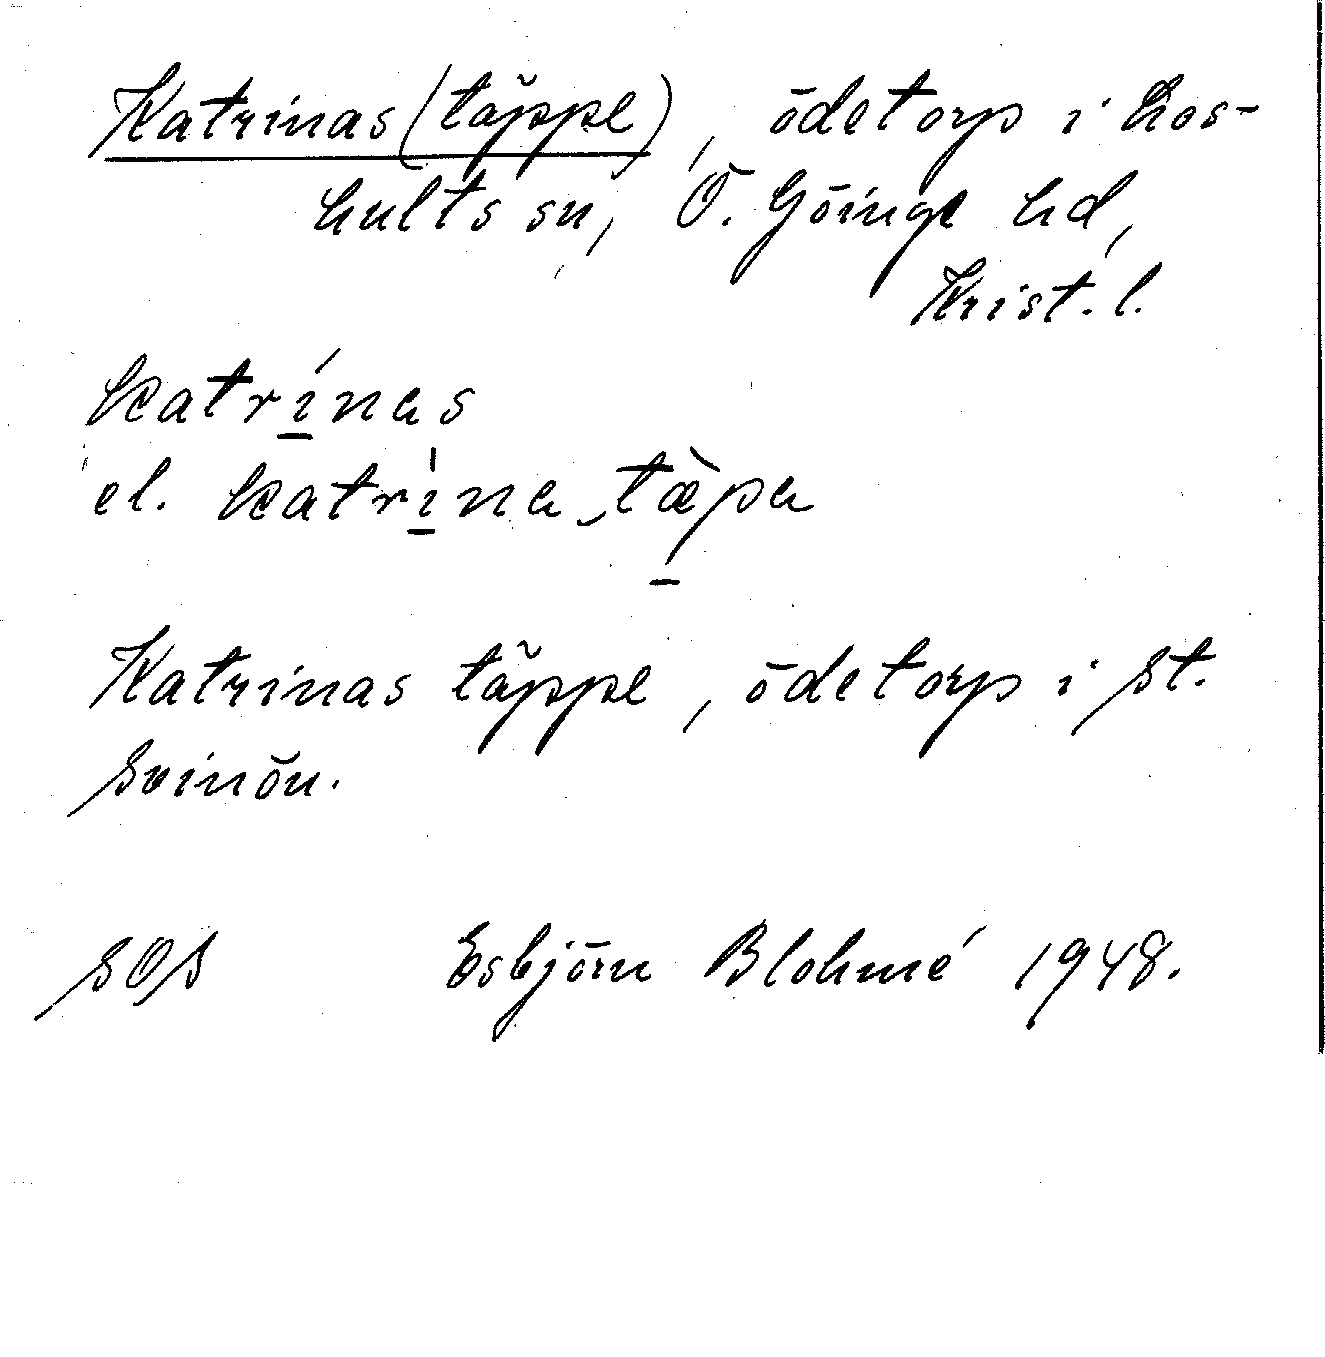 Katrinas (täppe), ödetorp i Hos-
hults sn, Ö. Göinge hd,
Krist. l.
katrínas
el. katrìna tæ̀pa
Katrinas täppe, ödetorp i St.
Svinön.
SOS Esbjörn Blohmé 1948.